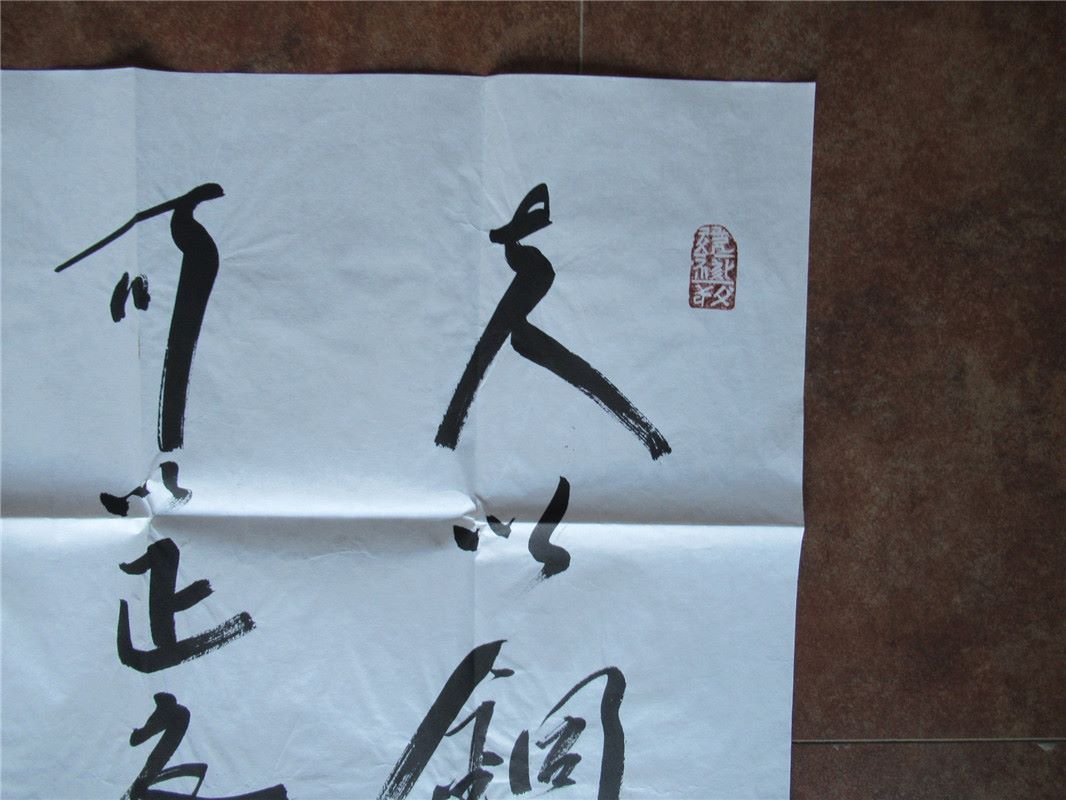 夫以銅
可以正衣